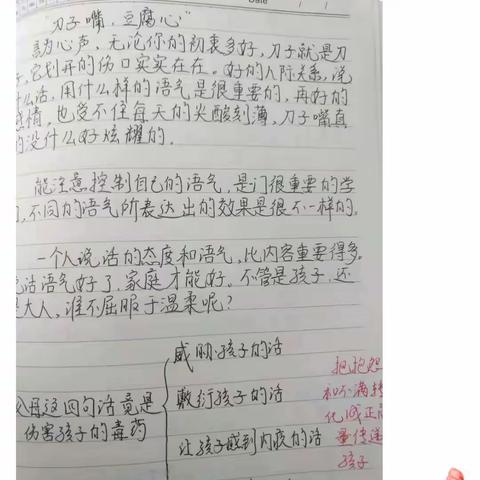 Date / /
"刀子嘴,豆腐心"
言为心声,无论你的初衷多好,刀子就是刀
子,它划开的伤口实实在在。好的人际关系,说
什么话,用什么样的语气是很重要的,再好的
感情,也受不住每天的尖酸刻薄,刀子嘴真
的没什么好炫耀的。
能注意控制自己的语气,是门很重要的学
问,不同的语气所表达出的效果是很不一样的。
一个人说话的态度和语气,比内容重要得多。
说话语气好了,家庭才能好。不管是孩子,还
是大人,谁不屈服于温柔呢?
父母这四句话竟是
伤害孩子的毒药
威胁孩子的话
敷衍孩子的话
让孩子感到内疚的话
把抱怨
和不满转
化成正
量传递
孩子